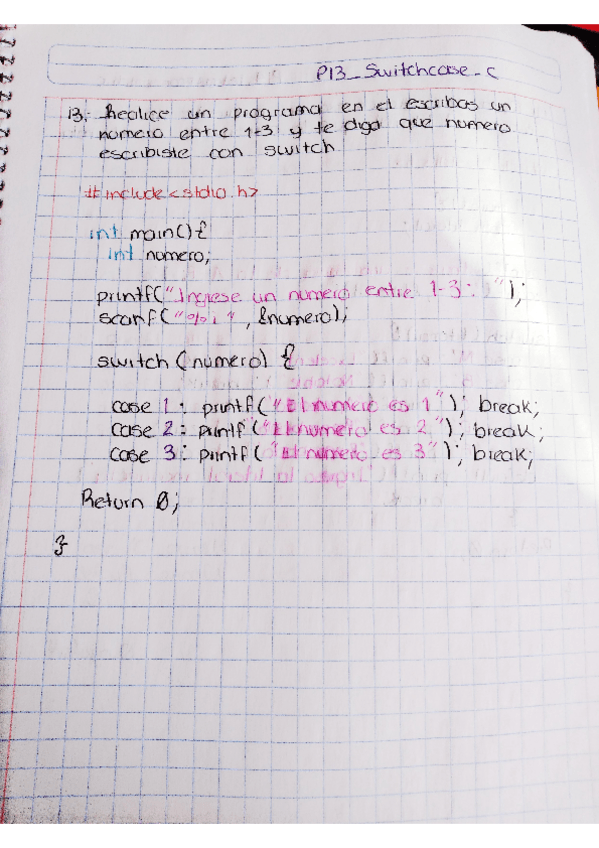 P13_Switchcase_c
13. Realice un programa en el escribas un
numero entre 1-3 y te diga que numero
escribiste con switch
#include<stdio.h>
int main(){
int numero;
printf("Ingrese un numero entre 1-3: ");
scanf("%i", &numero);
switch (numero) {
case 1: printf("El numero es 1"); break;
case 2: printf("El numero es 2"); break;
case 3: printf("El numero es 3"); break;
Return 0;
}